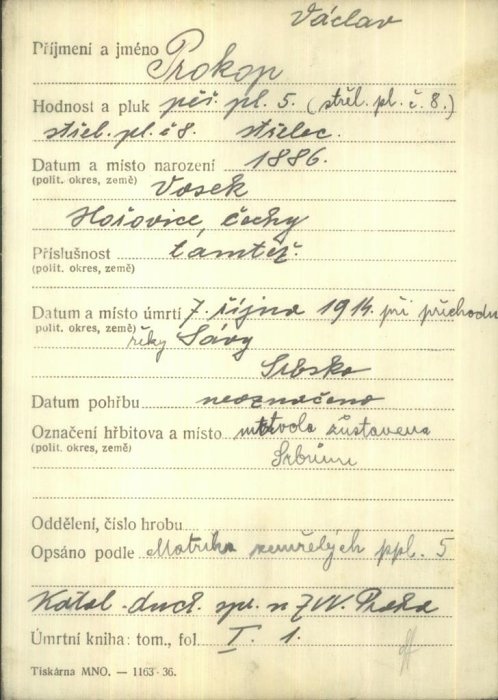 Václav
Příjmení a jméno Prokop
Hodnost a pluk pěš. pl. 5. (střel. pl. č. 8.)
střel. pl. č 8. střelec.
Datum a místo narození 1886.
(polit. okres, země) Vosek
Hořovice, Čechy
Příslušnost tamtéž.
(polit. okres, země)
Datum a místo úmrtí 7. října 1914. při přechodu
polit. okres, země) řeky Sávy
Srbsko
Datum pohřbu neoznačeno
Označení hřbitova a místo mrtvola zůstavena
(polit. okres, země) Srbům
Oddělení, číslo hrobu
Opsáno podle Matrika zemřelých ppl. 5
Katol. duch. spr. n ZVV. Praha
Úmrtní kniha: tom., fol. I. 1.
Tiskárna MNO. — 1163-36.